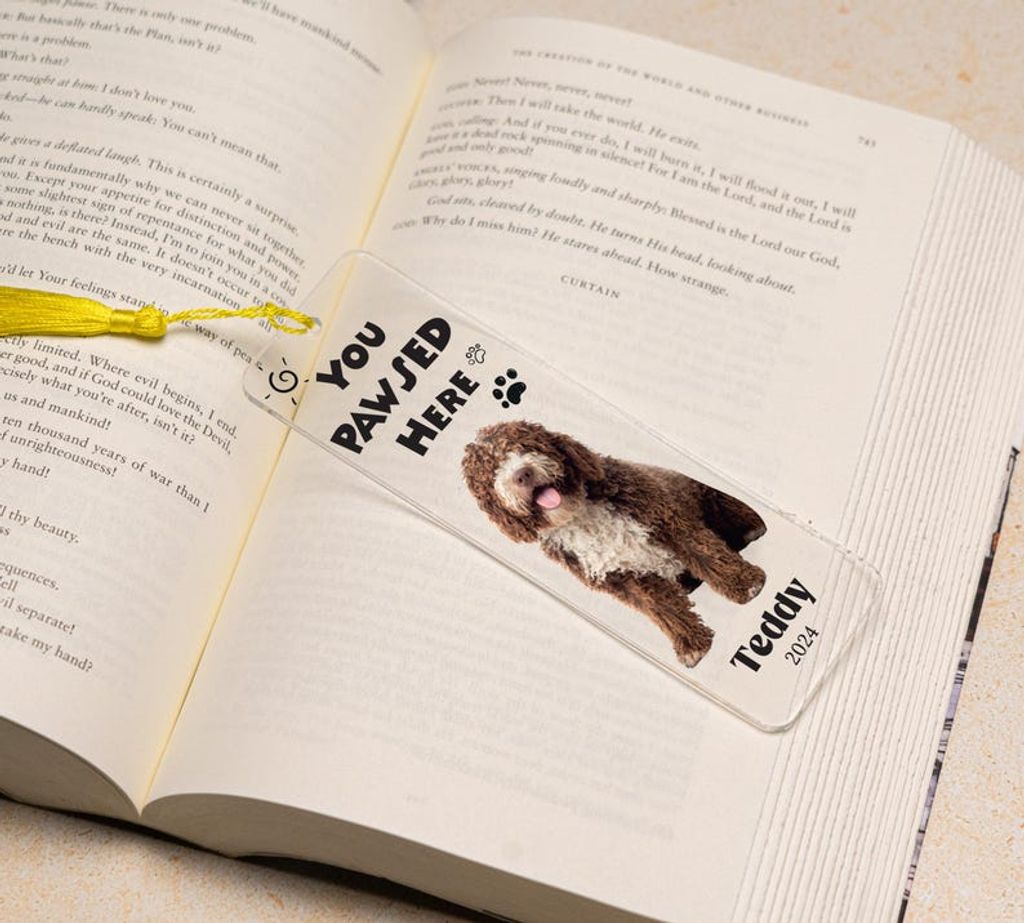 night pause. There is only one problem. we'll have mankind
But basically that's the Plan, isn't it?
ere is a problem.
What's that?
g straight at him: I don't love you.
cked—he can hardly speak: You can't mean that.
do.
He gives a deflated laugh. This is certainly a surprise.
nd it is fundamentally why we can never sit together,
you. Except your appetite for distinction and power,
some slightest sign of repentance for what you did
s nothing, is there? Instead, I'm to join you in a co
od and evil are the same. It doesn't occur to
ere the bench with the very incarnation of
u'd let Your feelings stand in the way of peace
ctly limited. Where evil begins, I end.
er good, and if God could love the Devil,
ecisely what you're after, isn't it?
us and mankind!
ten thousand years of war than I
f unrighteousness!
y hand!
ll thy beauty.
ss
equences.
ell
vil separate!
take my hand?
THE CREATION OF THE WORLD AND OTHER BUSINESS 743
GOD: Never! Never, never, never!
LUCIFER: Then I will take the world. He exits.
GOD, calling: And if you ever do, I will burn it, I will flood it out, I will
leave it a dead rock spinning in silence! For I am the Lord, and the Lord is
good and only good!
ANGELS' VOICES, singing loudly and sharply: Blessed is the Lord our God,
Glory, glory, glory!
God sits, cleaved by doubt. He turns His head, looking about.
GOD: Why do I miss him? He stares ahead. How strange.
CURTAIN
YOU
PAWSED
HERE
Teddy
2024